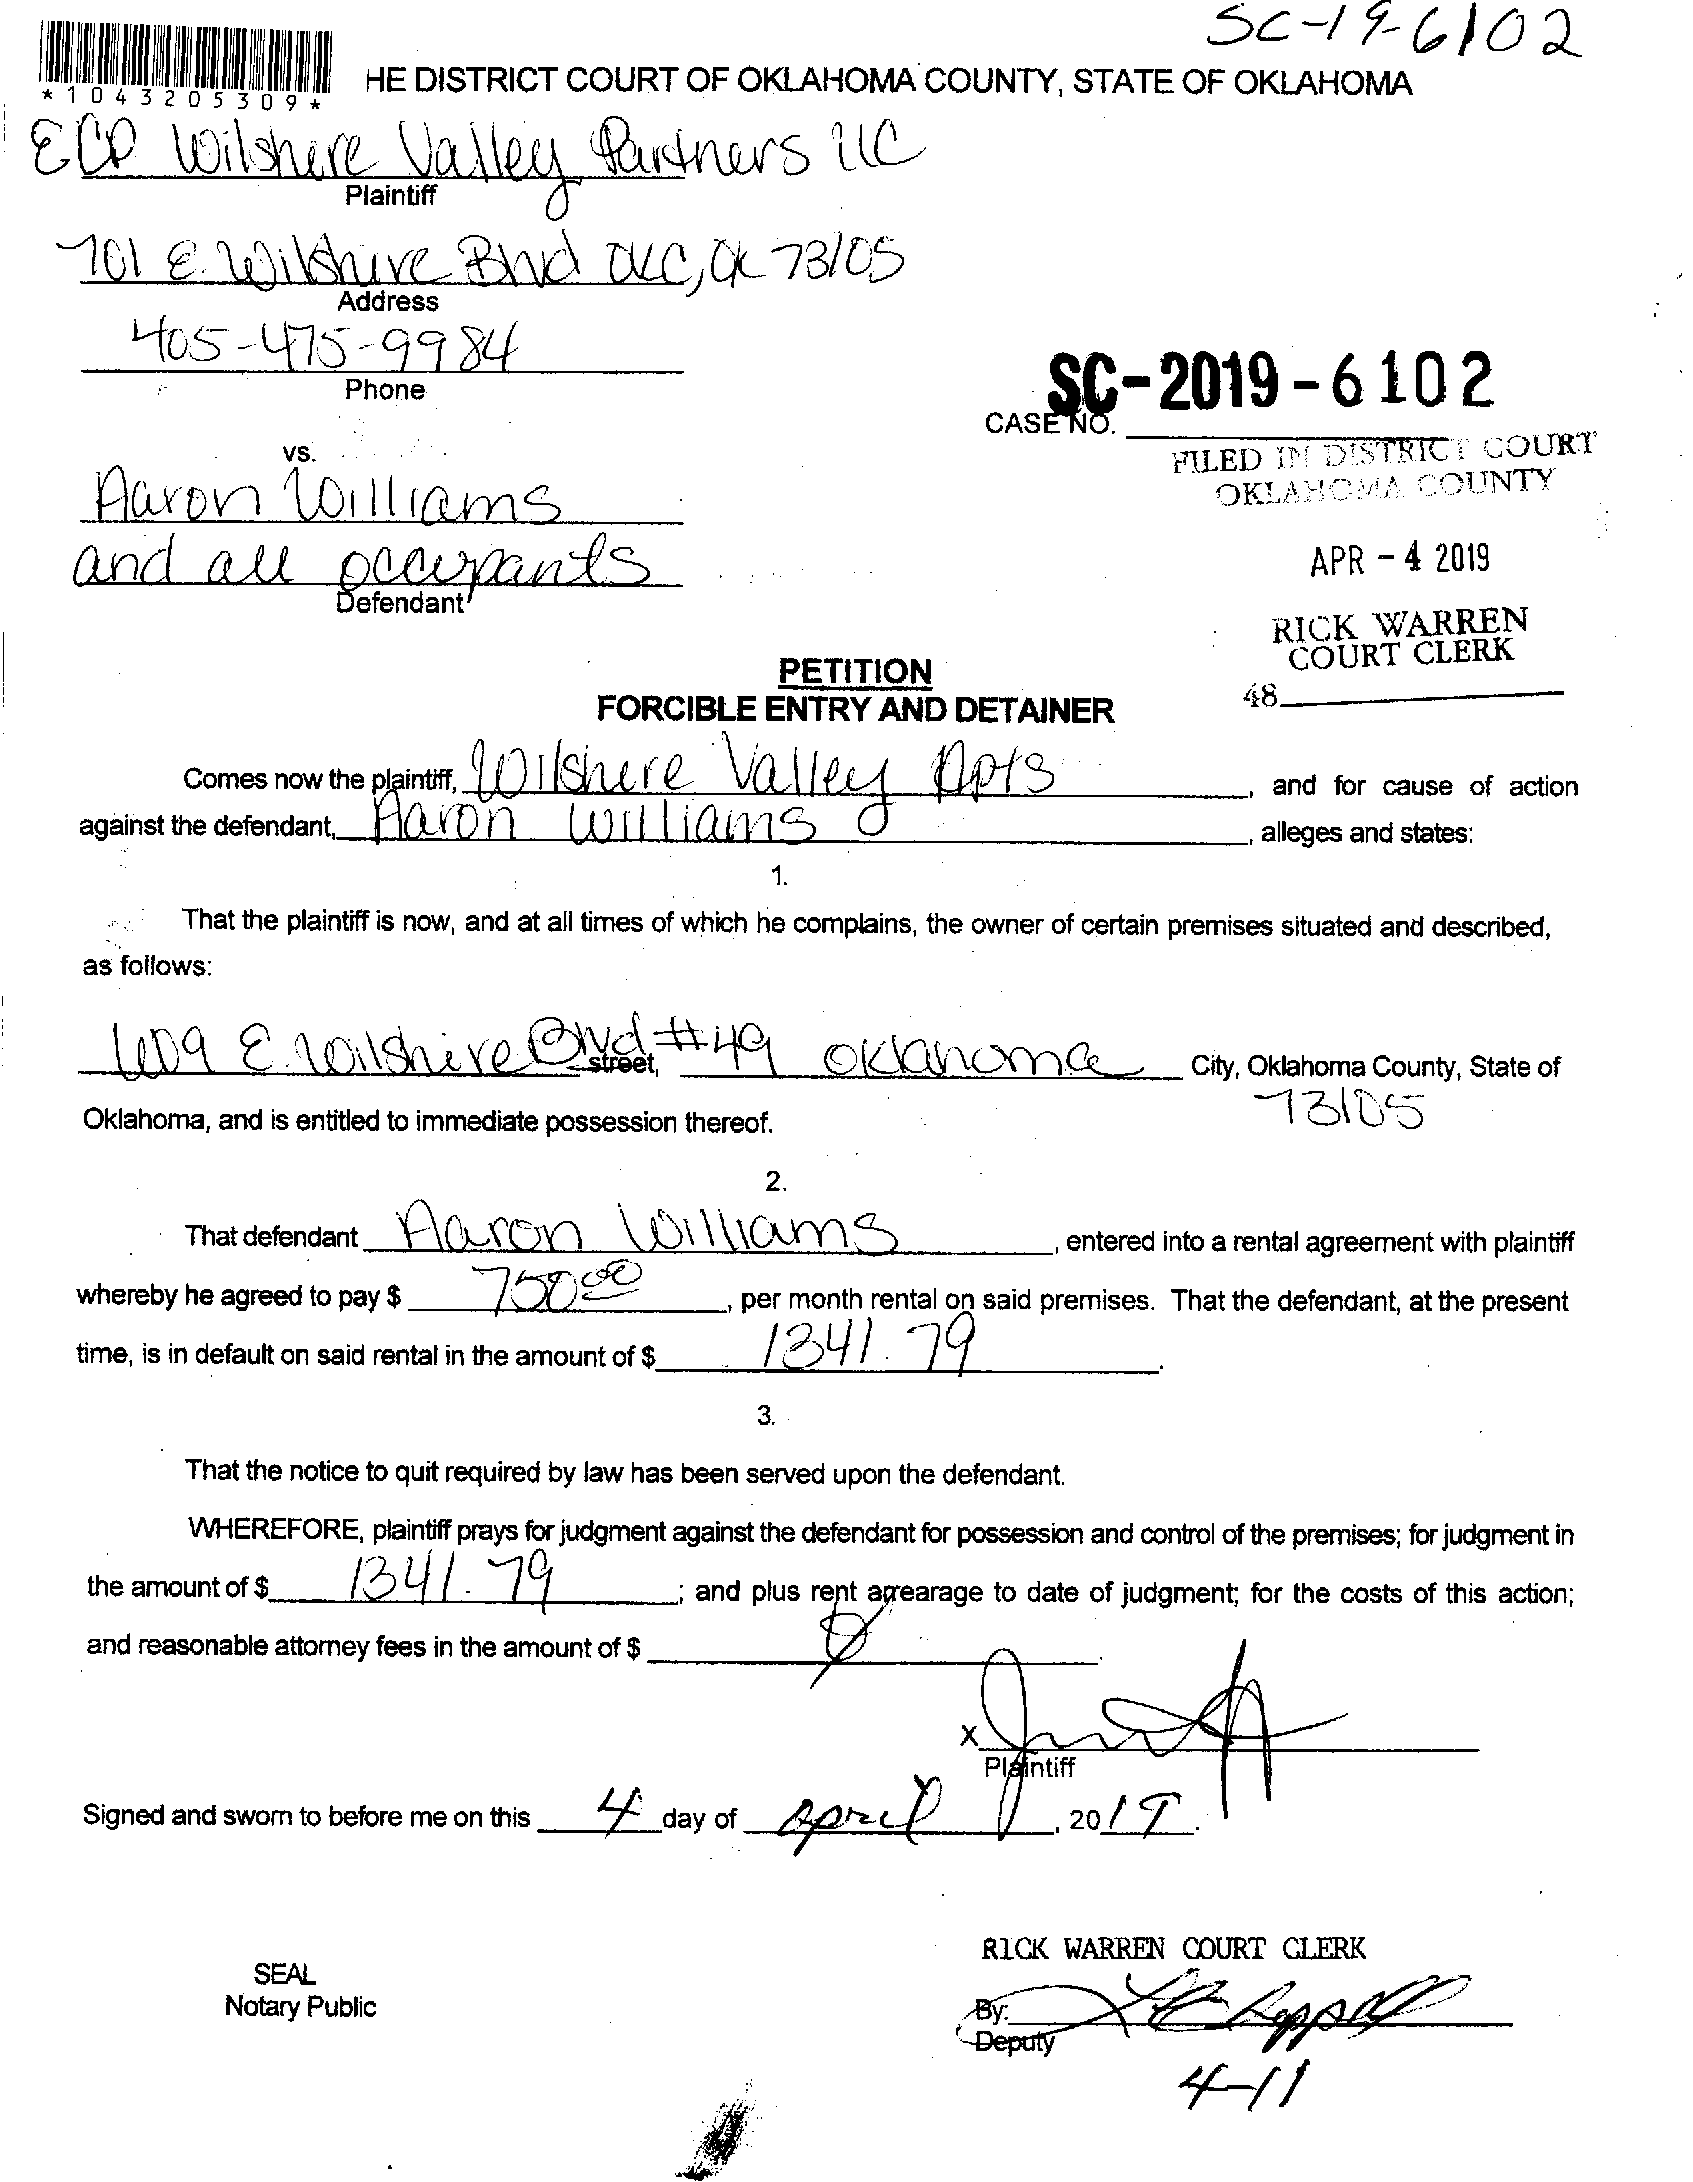 SC-19-6102
*1043205309*
HE DISTRICT COURT OF OKLAHOMA COUNTY, STATE OF OKLAHOMA
ECP Wilshire Valley Partners LLC
Plaintiff
701 E. Wilshire Blvd OKC, OK 73105
Address
405-475-9984
Phone
SC-2019-6102
CASE NO.
FILED IN DISTRICT COURT
OKLAHOMA COUNTY
vs.
Aaron Williams
and all occupants
Defendant
APR - 4 2019
RICK WARREN
COURT CLERK
48
PETITION
FORCIBLE ENTRY AND DETAINER
Comes now the plaintiff, Wilshire Valley Apts, and for cause of action
against the defendant, Aaron Williams, alleges and states:
1.
That the plaintiff is now, and at all times of which he complains, the owner of certain premises situated and described,
as follows:
609 E. Wilshire Blvd street, #49 Oklahoma City, Oklahoma County, State of
73105
Oklahoma, and is entitled to immediate possession thereof.
2.
That defendant Aaron Williams, entered into a rental agreement with plaintiff
whereby he agreed to pay $ 750.00, per month rental on said premises. That the defendant, at the present
time, is in default on said rental in the amount of $ 1341.79.
3.
That the notice to quit required by law has been served upon the defendant.
WHEREFORE, plaintiff prays for judgment against the defendant for possession and control of the premises; for judgment in
the amount of $ 1341.79; and plus rent arrearage to date of judgment; for the costs of this action;
and reasonable attorney fees in the amount of $ 0.
X
Plaintiff
Signed and sworn to before me on this 4 day of April, 2019.
RICK WARREN COURT CLERK
SEAL
Notary Public
By:
Deputy
4-11